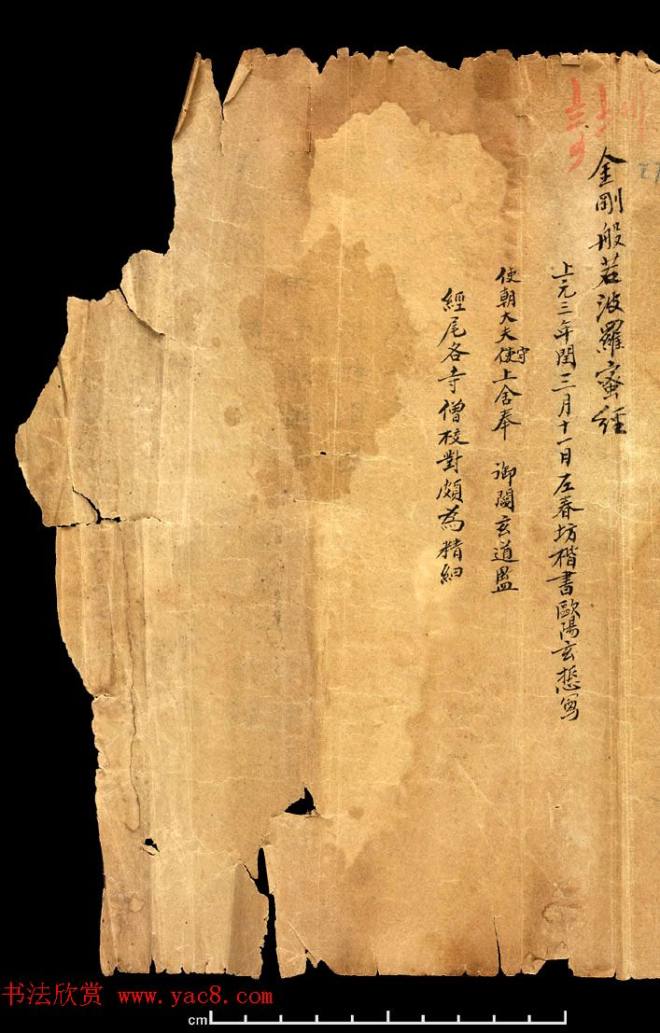 金剛般若波羅蜜經
上元三年閏三月十一日左春坊楷書歐陽玄悊寫
使朝大夫守使上舍奉　御閻玄道監
經尾各寺僧校對頗為精細
书法欣赏 www.yac8.com
cm